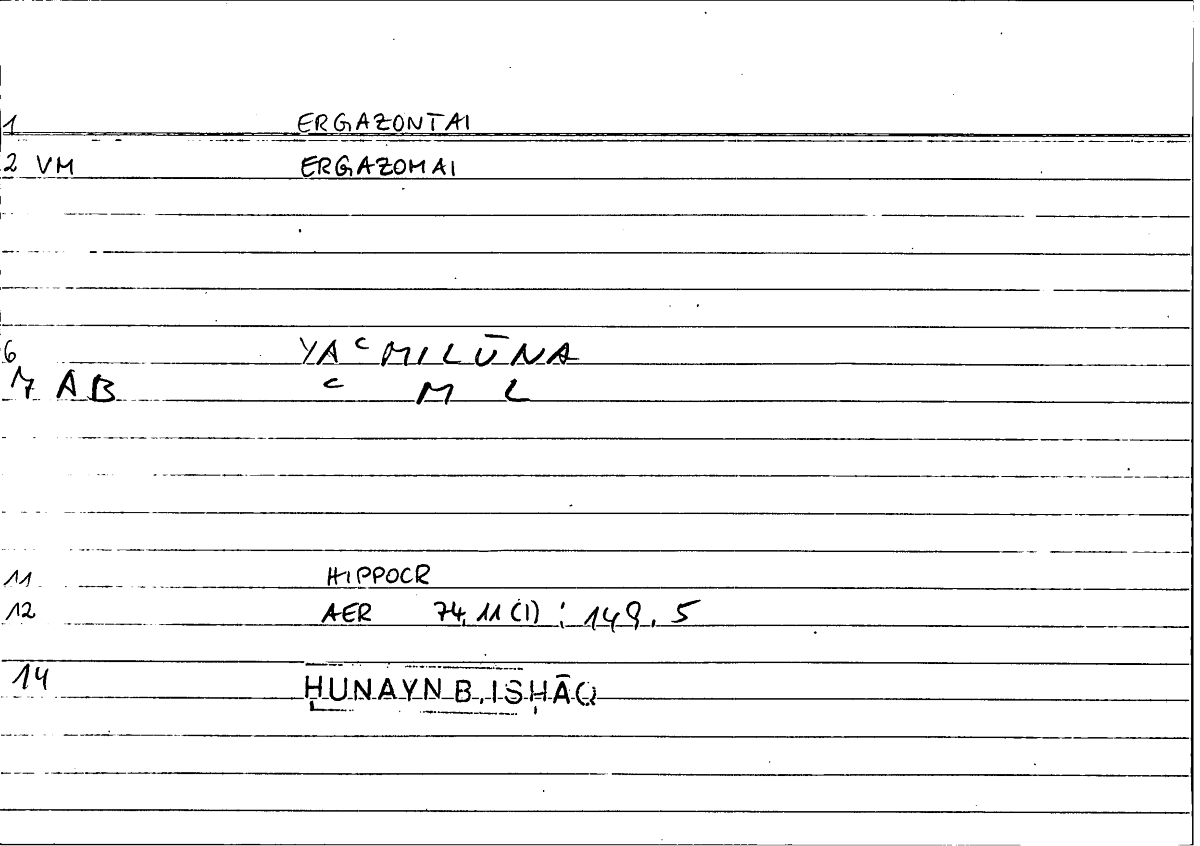 1 ERGAZONTAI
2 VM ERGAZOMAI
6 YAᶜMILŪNA
7 AB ᶜ M L
11 HIPPOCR
12 AER 74,11(1) : 149,5
14 ḤUNAYN B. ISḤĀQ